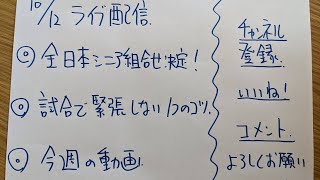 10/12 ライブ配信
◎ 全日本シニア組合せ決定!
◎ 試合で緊張しない1つのコツ.
◎ 今週の動画.
チャンネル
登録.
いいね!
コメント.
よろしくお願い